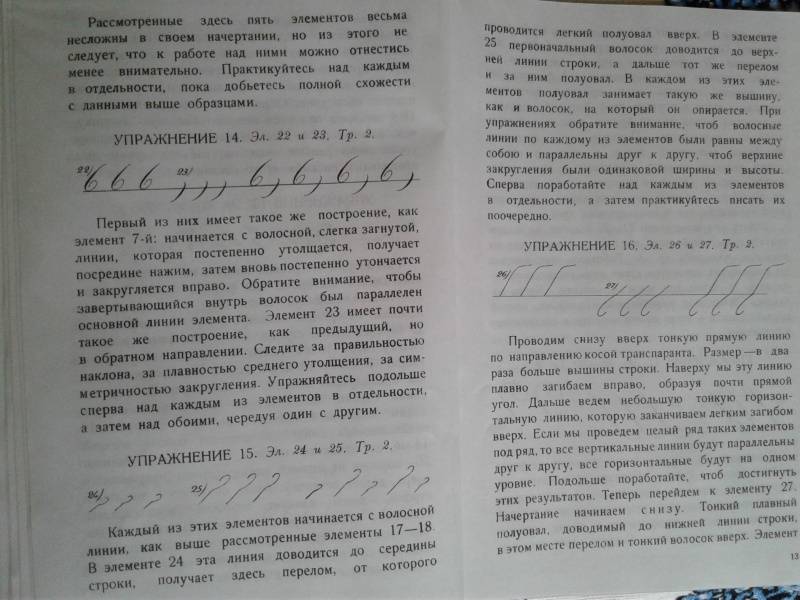 Рассмотренные здесь пять элементов весьма
несложны в своем начертании, но из этого не
следует, что к работе над ними можно отнестись
менее внимательно. Практикуйтесь над каждым
в отдельности, пока добьетесь полной схожести
с данными выше образцами.
УПРАЖНЕНИЕ 14. Эл. 22 и 23. Тр. 2.
22) 23)
Первый из них имеет такое же построение, как
элемент 7-й: начинается с волосной, слегка загнутой,
линии, которая постепенно утолщается, получает
посредине нажим, затем вновь постепенно утончается
и закругляется вправо. Обратите внимание, чтобы
завертывающийся внутрь волосок был параллелен
основной линии элемента. Элемент 23 имеет почти
такое же построение, как предыдущий, но
в обратном направлении. Следите за правильностью
наклона, за плавностью среднего утолщения, за сим-
метричностью закругления. Упражняйтесь подольше
сперва над каждым из элементов в отдельности,
а затем над обоими, чередуя один с другим.
УПРАЖНЕНИЕ 15. Эл. 24 и 25. Тр. 2.
24) 25)
Каждый из этих элементов начинается с волосной
линии, как выше рассмотренные элементы 17—18.
В элементе 24 эта линия доводится до середины
строки, получает здесь перелом, от которого
проводится легкий полуовал вверх. В элементе
25 первоначальный волосок доводится до верх-
ней линии строки, а дальше тот же перелом
и за ним полуовал. В каждом из этих эле-
ментов полуовал занимает такую же вышину,
как и волосок, на который он опирается. При
упражнениях обратите внимание, чтоб волосные
линии по каждому из элементов были равны между
собою и параллельны друг к другу, чтоб верхние
закругления были одинаковой ширины и высоты.
Сперва поработайте над каждым из элементов
в отдельности, а затем практикуйтесь писать их
поочередно.
УПРАЖНЕНИЕ 16. Эл. 26 и 27. Тр. 2.
26) 27)
Проводим снизу вверх тонкую прямую линию
по направлению косой транспаранта. Размер — в два
раза больше вышины строки. Наверху мы эту линию
плавно загибаем вправо, образуя почти прямой
угол. Дальше ведем небольшую тонкую горизон-
тальную линию, которую заканчиваем легким загибом
вверх. Если мы проведем целый ряд таких элементов
под ряд, то все вертикальные линии будут параллельны
друг к другу, все горизонтальные будут на одном
уровне. Подольше поработайте, чтоб достигнуть
этих результатов. Теперь перейдем к элементу 27.
Начертание начинаем снизу. Тонкий плавный
полуовал, доводимый до нижней линии строки,
в этом месте перелом и тонкий волосок вверх. Элемент
13